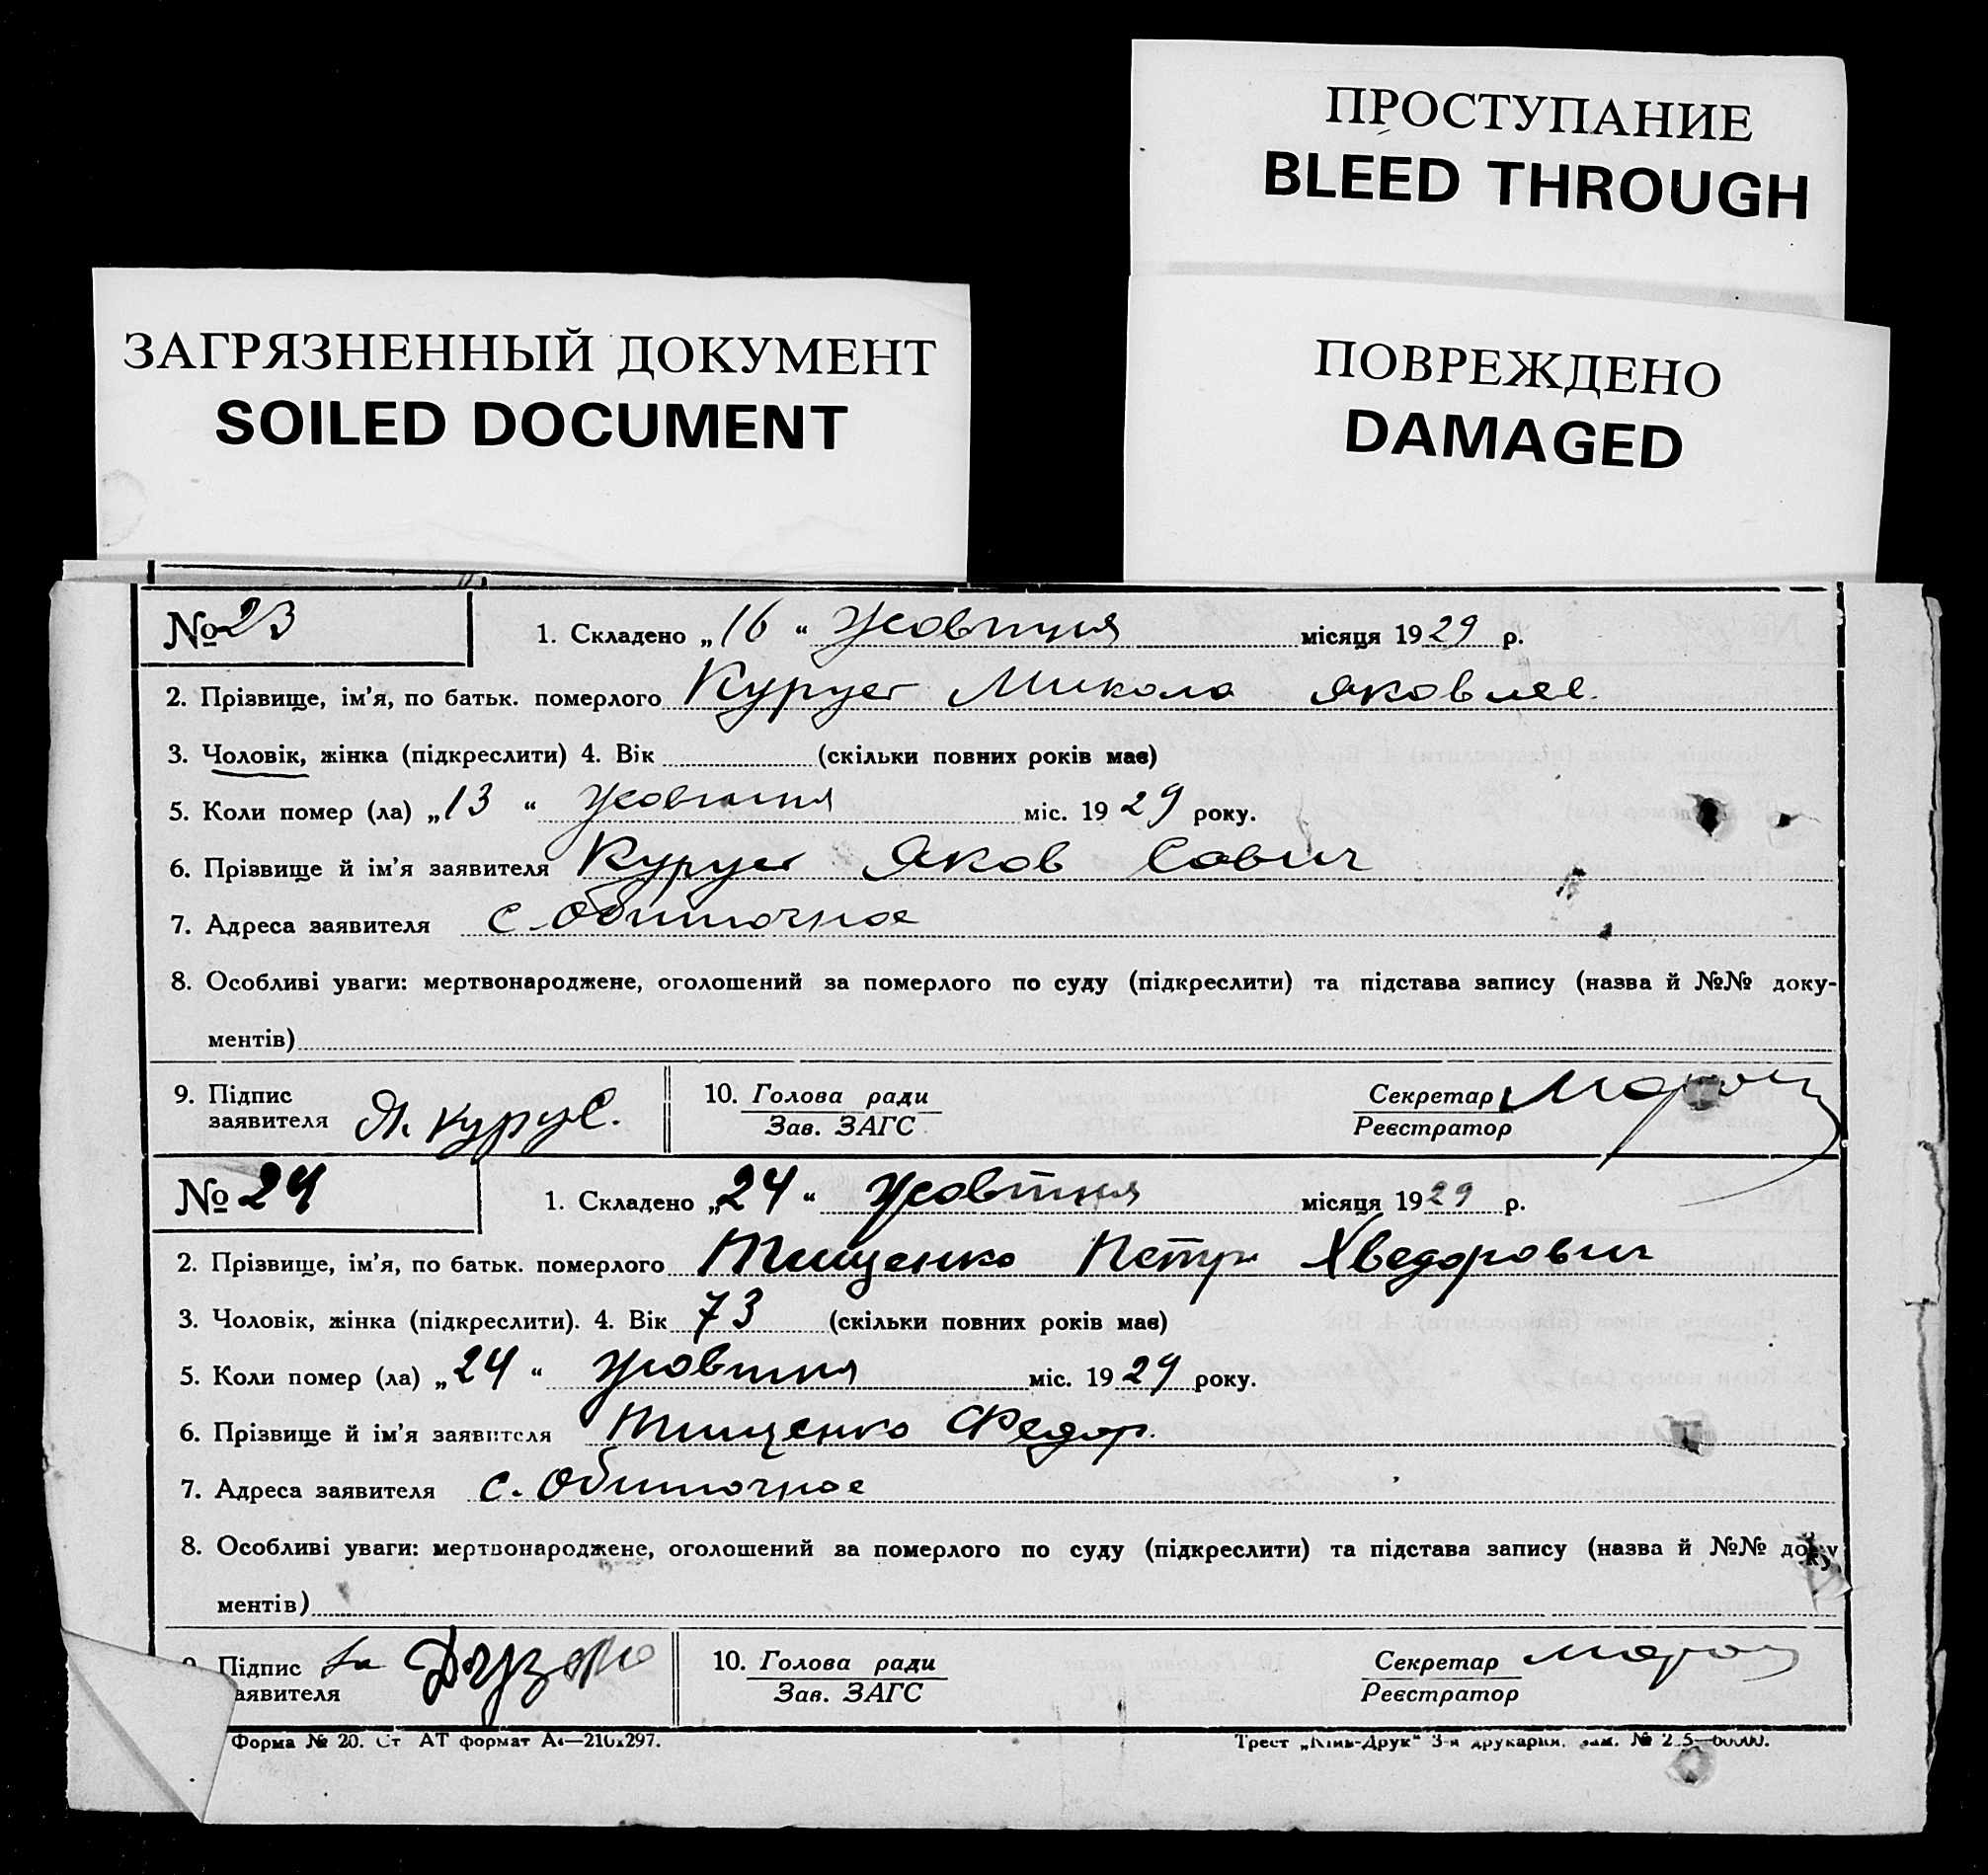 ПРОСТУПАНИЕ
BLEED THROUGH
ЗАГРЯЗНЕННЫЙ ДОКУМЕНТ
SOILED DOCUMENT
ПОВРЕЖДЕНО
DAMAGED
№ 23 1. Складено „16“ Жовтня місяця 1929 р.
2. Прізвище, ім'я, по батьк. померлого Микола Яковлев.
3. Чоловік, жінка (підкреслити) 4. Вік (скільки повних років має)
5. Коли помер (ла) „13“ Жовтня міс. 1929 року.
6. Прізвище й ім'я заявителя Яков Савич
7. Адреса заявителя с. Обиточное
8. Особливі уваги: мертвонароджене, оголошений за померлого по суду (підкреслити) та підстава запису (назва й №№ доку-
ментів)
9. Підпис заявителя Я. 10. Голова ради Зав. ЗАГС Секретар Реєстратор
№ 24 1. Складено „24“ Жовтня місяця 1929 р.
2. Прізвище, ім'я, по батьк. померлого Тищенко Петро Хведорович
3. Чоловік, жінка (підкреслити). 4. Вік 73 (скільки повних років має)
5. Коли помер (ла) „24“ Жовтня міс. 1929 року.
6. Прізвище й ім'я заявителя Тищенко Федор.
7. Адреса заявителя с. Обиточное
8. Особливі уваги: мертвонароджене, оголошений за померлого по суду (підкреслити) та підстава запису (назва й №№ доку
ментів)
Підпис за аявителя 10. Голова ради Зав. ЗАГС Секретар Реєстратор
Форма № 20. Ст АТ формат А4—210x297. Трест „Київ-Друк“ 3-я друкарня.